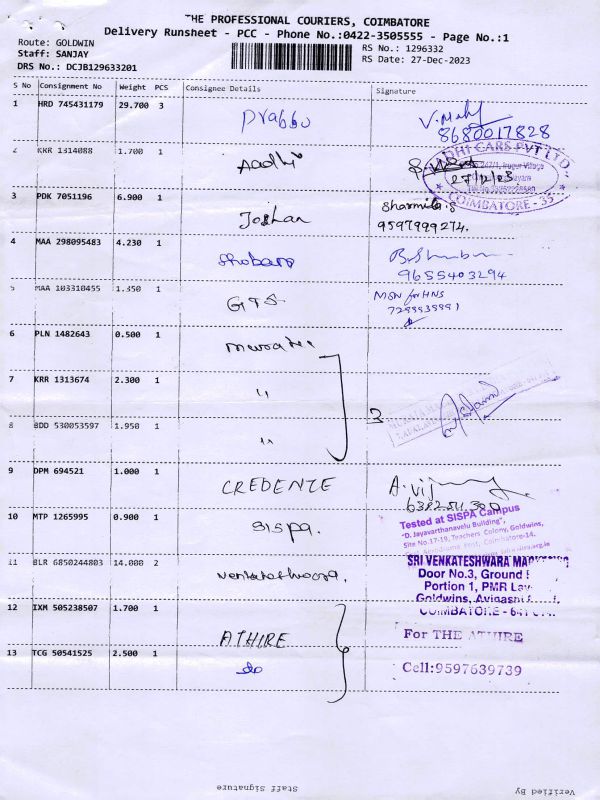 THE PROFESSIONAL COURIERS, COIMBATORE
Delivery Runsheet - PCC - Phone No.:0422-3505555 - Page No.:1
Route: GOLDWIN
Staff: SANJAY
DRS No.: DCJB129633201
RS No.: 1296332
RS Date: 27-Dec-2023
S No Consignment No Weight PCS Consignee Details Signature
1 HRD 745431179 29.700 3 Prabbu V.Mahy
8680017828
2 KRR 1314088 1.700 1 Aadhi
CARS PVT LTD
27/12/23
COIMBATORE - 35
3 PDK 7051196 6.900 1 Joshan Sharmila.S
9597999274.
4 MAA 298095483 4.230 1 Shobana
9655403294
5 MAA 103310455 1.350 1 GTS MSN for HNS
6 PLN 1482643 0.500 1
7 KRR 1313674 2.300 1 "
8 BDD 530053597 1.950 1 "
3
9 DPM 694521 1.000 1 CREDENCE A.Vijay
10 MTP 1265995 0.900 1 Sispa.
Tested at SISPA Campus
"D. Jayavarthanavelu Building",
Site No.17-19, Teachers Colony, Goldwins,
Coimbatore-14.
11 BLR 6850244803 14.000 2 Venkateshwara.
SRI VENKATESHWARA
Door No.3, Ground
Portion 1, PMR
Goldwins, Avinashi
COIMBATORE - 641
12 IXM 505238507 1.700 1 ATHIRE
For THE ATHIRE
13 TCG 50541525 2.500 1 do
Cell:9597639739
Staff Signature
Verified By